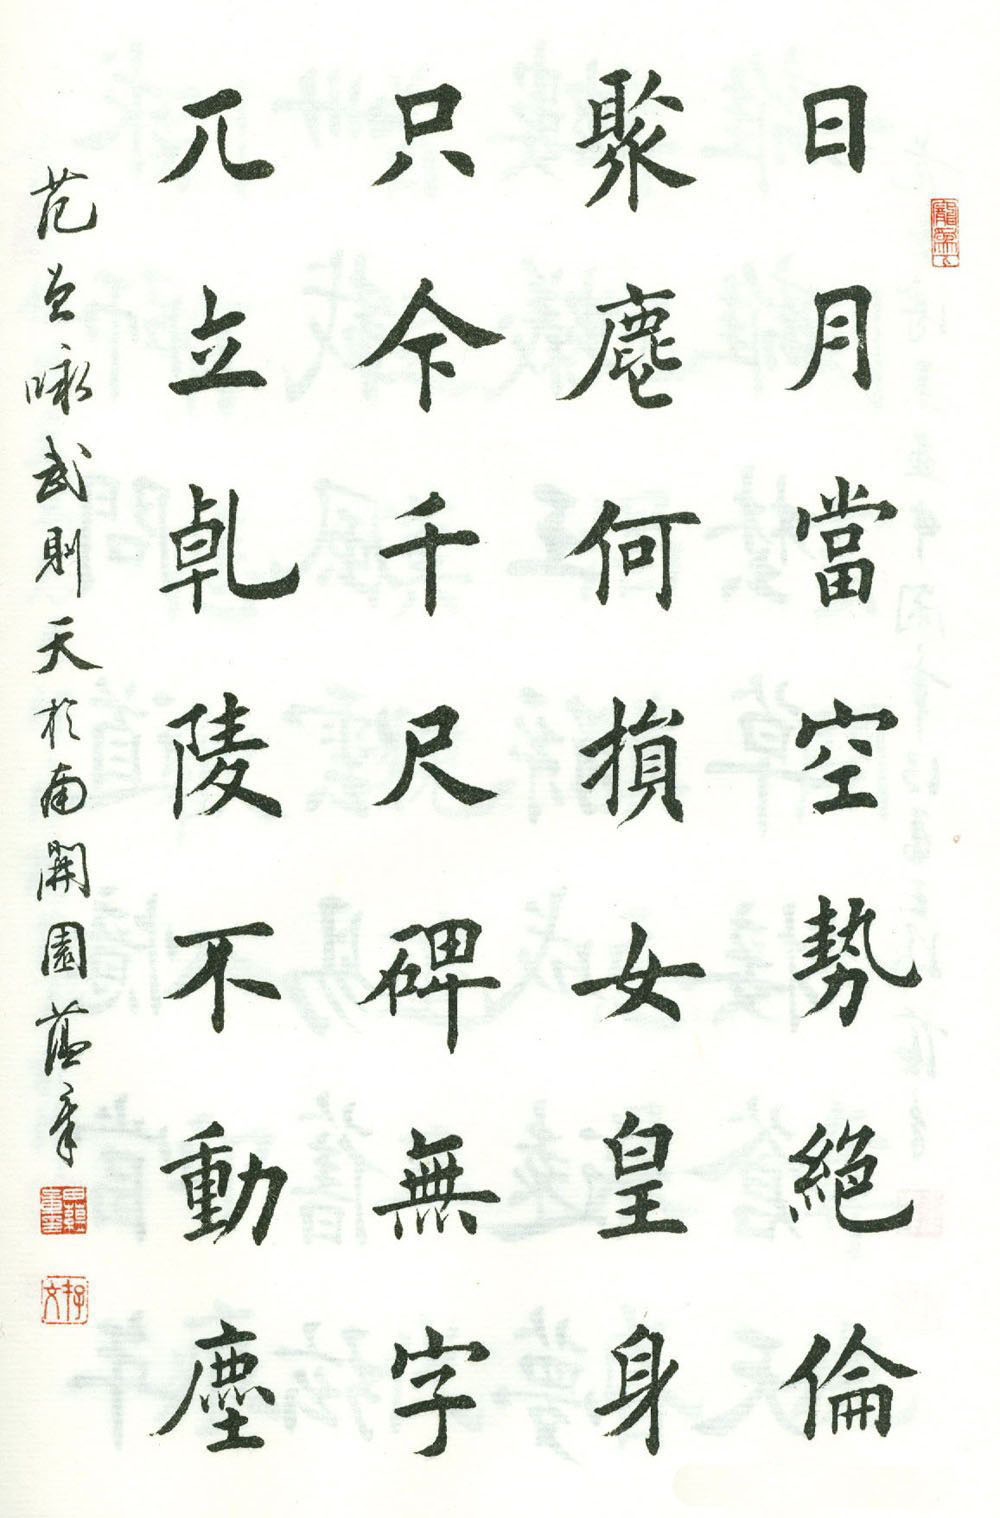 日月當空勢絶倫
聚麀何損女皇身
只今千尺碑無字
兀立乹陵不動塵
范曾咏武則天於南開園蘊章